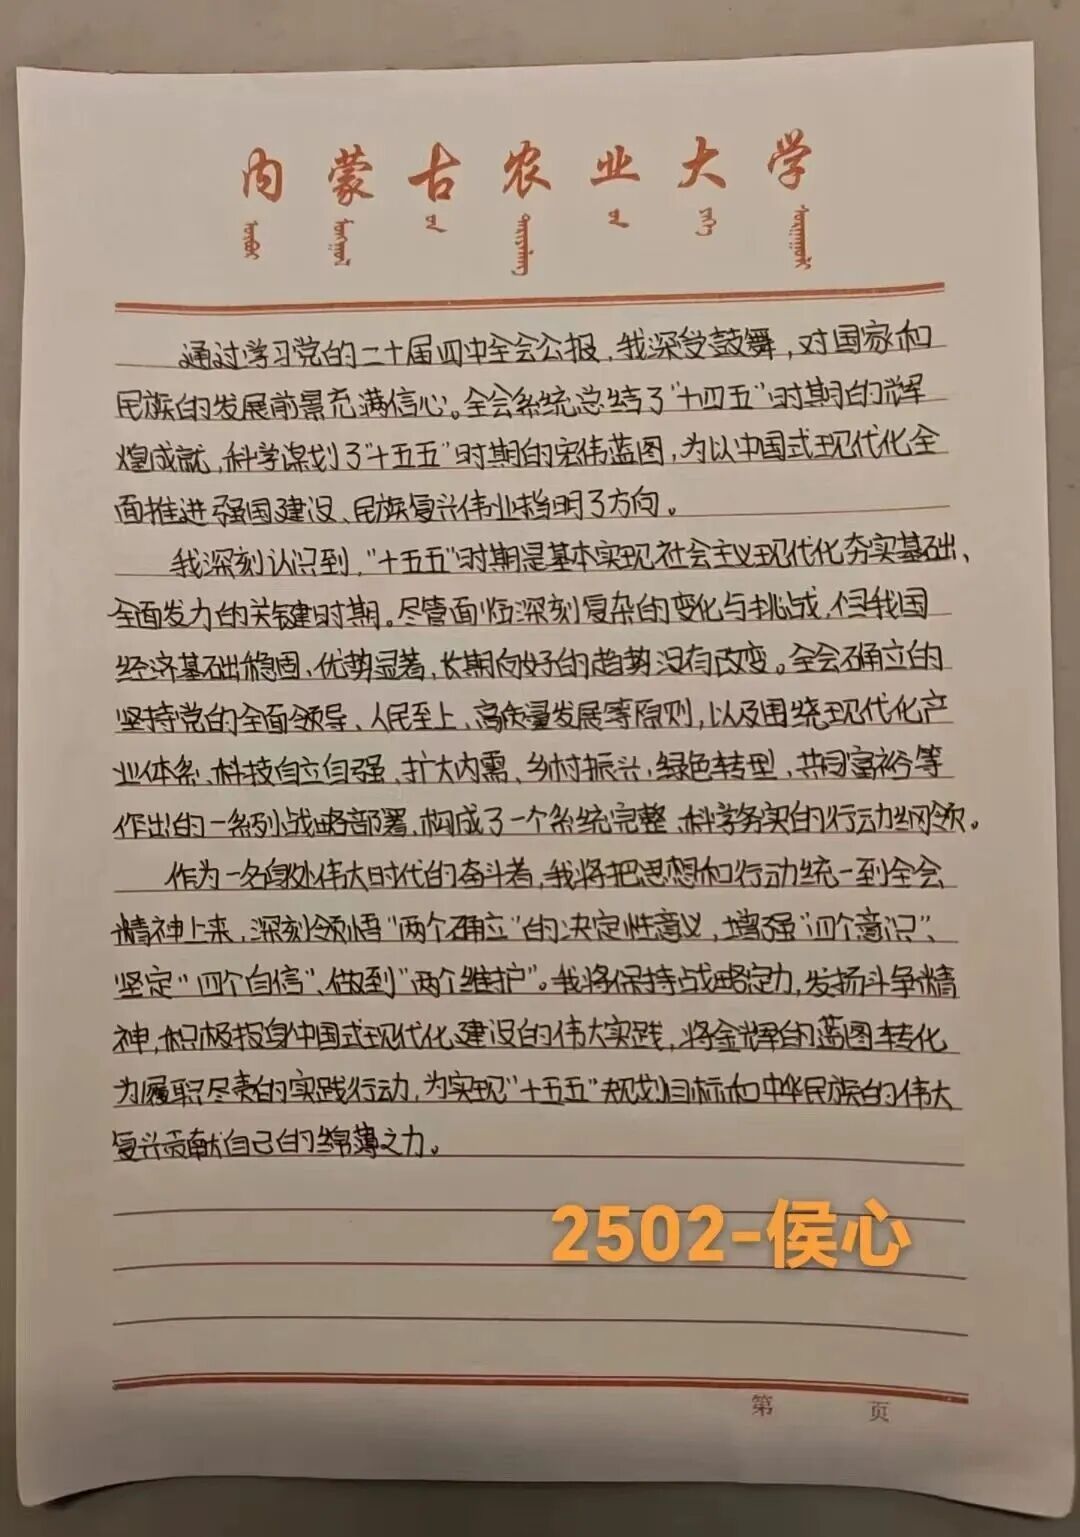 内蒙古农业大学
通过学习党的二十届四中全会公报，我深受鼓舞，对国家和
民族的发展前景充满信心。全会系统总结了“十四五”时期的辉
煌成就，科学谋划了“十五五”时期的宏伟蓝图，为以中国式现代化全
面推进强国建设、民族复兴伟业指明了方向。
我深刻认识到，“十五五”时期是基本实现社会主义现代化夯实基础、
全面发力的关键时期。尽管面临深刻复杂的变化与挑战，但我国
经济基础稳固、优势显著，长期向好的趋势没有改变。全会确立的
坚持党的全面领导、人民至上、高质量发展等原则，以及围绕现代化产
业体系、科技自立自强、扩大内需、乡村振兴，绿色转型、共同富裕等
作出的一系列战略部署，构成了一个系统完整、科学务实的行动纲领。
作为一名身处伟大时代的奋斗者，我将把思想和行动统一到全会
精神上来，深刻领悟“两个确立”的决定性意义，增强“四个意识”、
坚定“四个自信”、做到“两个维护”。我将保持战略定力，发扬斗争精
神，积极投身中国式现代化建设的伟大实践，将金辉的蓝图转化
为履职尽责的实践行动，为实现“十五五”规划目标和中华民族的伟大
复兴贡献自己的绵薄之力。
2502-侯心
第 页